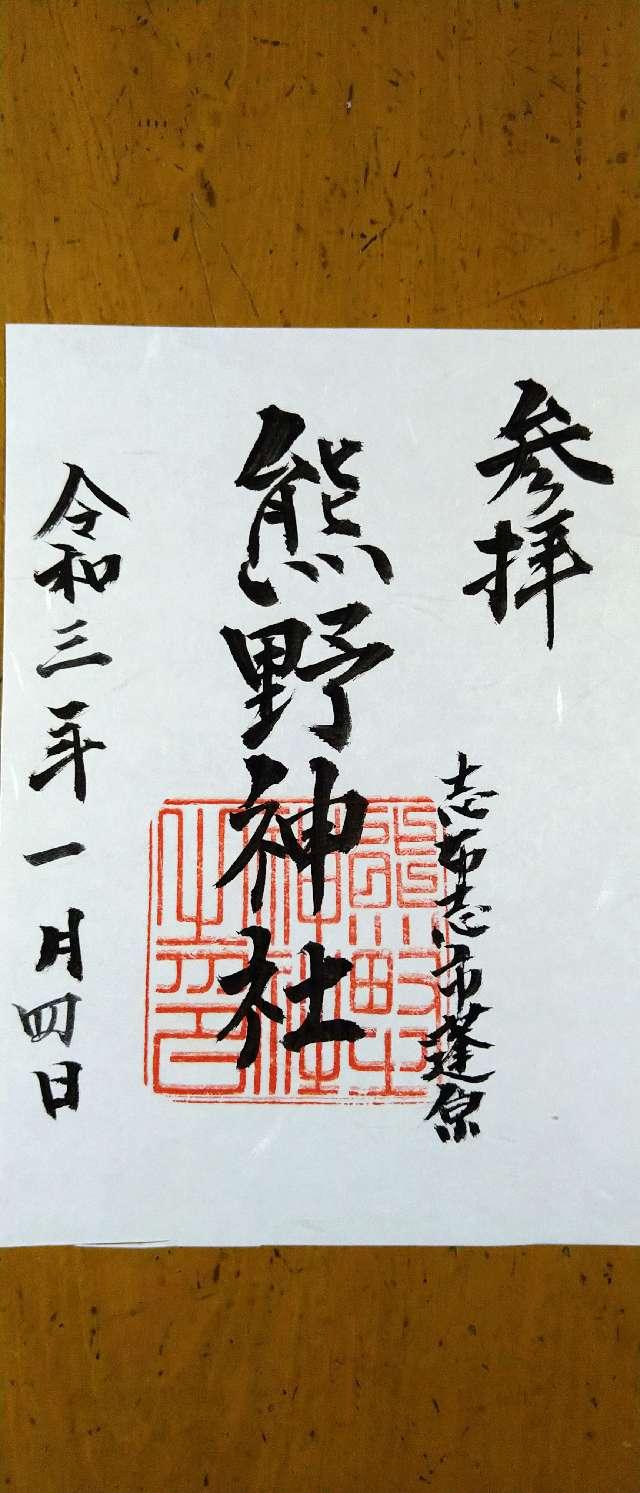 参拝
志布志市蓬原
熊野神社
令和三年一月四日
熊野
神社
之印